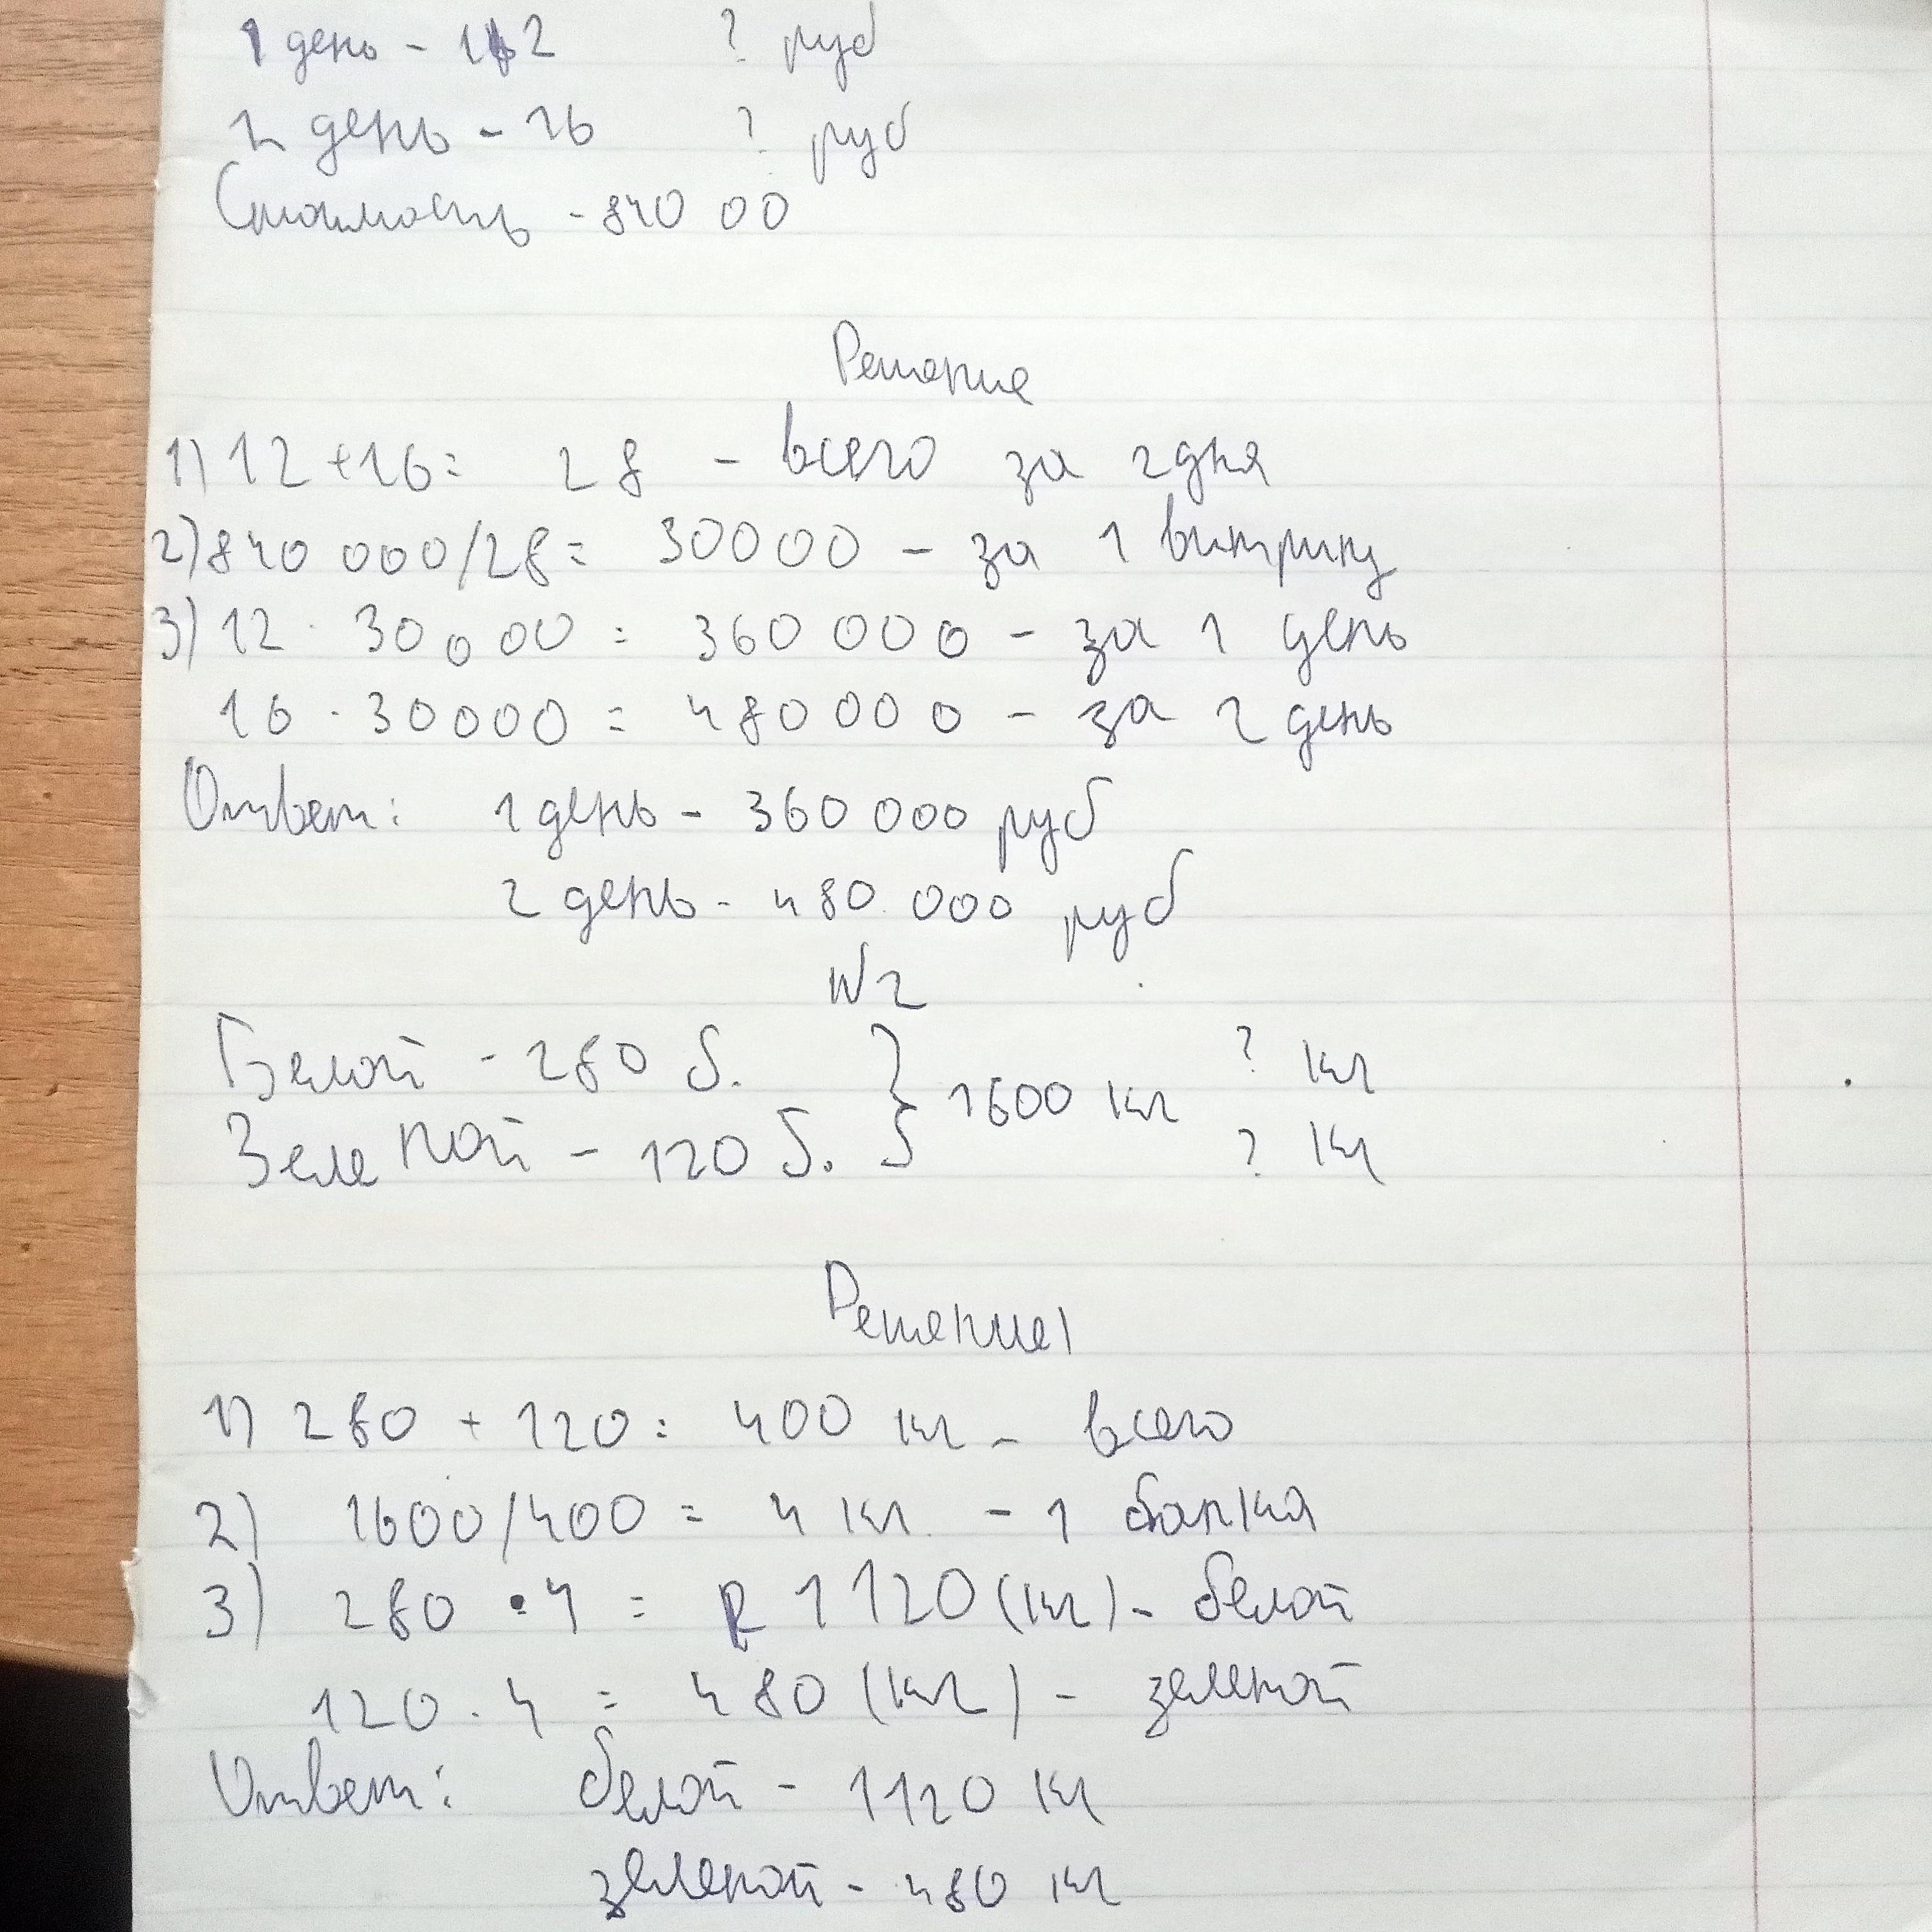 1 день - 12 ? руб
2 день - 16 ? руб
Стоимость - 840 00
Решение
1) 12 + 16 = 28 - всего за 2 дня
2) 840 000/28 = 30000 - за 1 витрину
3) 12 · 30000 = 360 000 - за 1 день
16 · 30000 = 480000 - за 2 день
Ответ: 1 день - 360 000 руб
2 день - 480 000 руб
N2
Белой - 280 б. } 1600 кг ? кг
Зеленой - 120 б. ? кг
Решение
1) 280 + 120 = 400 кг - всего
2) 1600/400 = 4 кг. - 1 банка
3) 280 · 4 = 1120 (кг) - белой
120 · 4 = 480 (кг) - зеленой
Ответ: белой - 1120 кг
зеленой - 480 кг